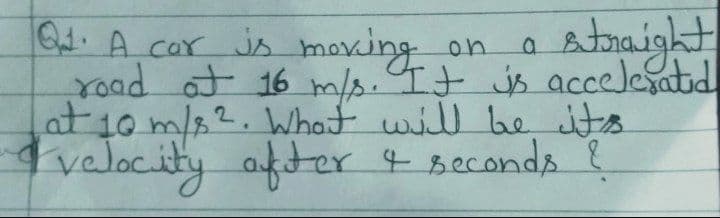 Q1. A car is moving on a straight
road at 16 m/s. It is accelerated
at 10 m/s². What will be its
velocity after 4 seconds ?